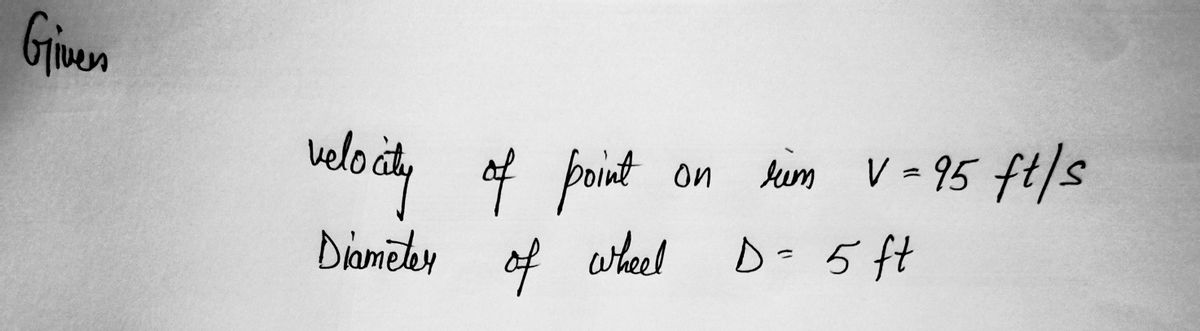 Given
velocity of point on rim V = 95 ft/s
Diameter of wheel D = 5 ft